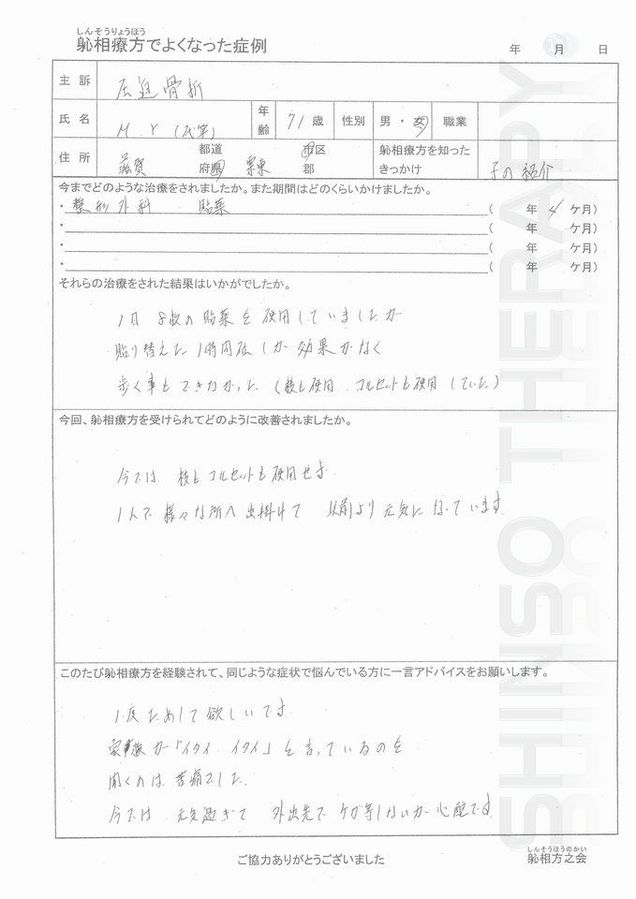 しんそうりょうほう
躮相療方でよくなった症例
年 月 日
主訴 圧迫骨折
氏名 M.Y(代筆) 年齢 71歳 性別 男・女 職業
住所 滋賀 都道府県 栗東 市区郡 躮相療方を知ったきっかけ 子の紹介
今までどのような治療をされましたか。また期間はどのくらいかけましたか。
・整形外科 貼薬 ( 年 4 ケ月)
・ ( 年 ケ月)
・ ( 年 ケ月)
・ ( 年 ケ月)
それらの治療をされた結果はいかがでしたか。
1日 8枚の貼薬を使用していましたが
貼り替えた1時間位しか効果がなく
歩く事もできなかった(杖も使用 コルセットも使用していた)
今回、躮相療方を受けられてどのように改善されましたか。
今では 杖もコルセットも使用せず
1人で様々な所へ出掛けて 以前より元気になっています
このたび躮相療方を経験されて、同じような症状で悩んでいる方に一言アドバイスをお願いします。
1度ためして欲しいです
家族が「イタイ イタイ」と言っているのを
聞くのは苦痛でした
今では 元気過ぎて 外出先でケガ等しないか心配です
SHINSO THERAPY
ご協力ありがとうございました
しんそうほうのかい
躮相方之会